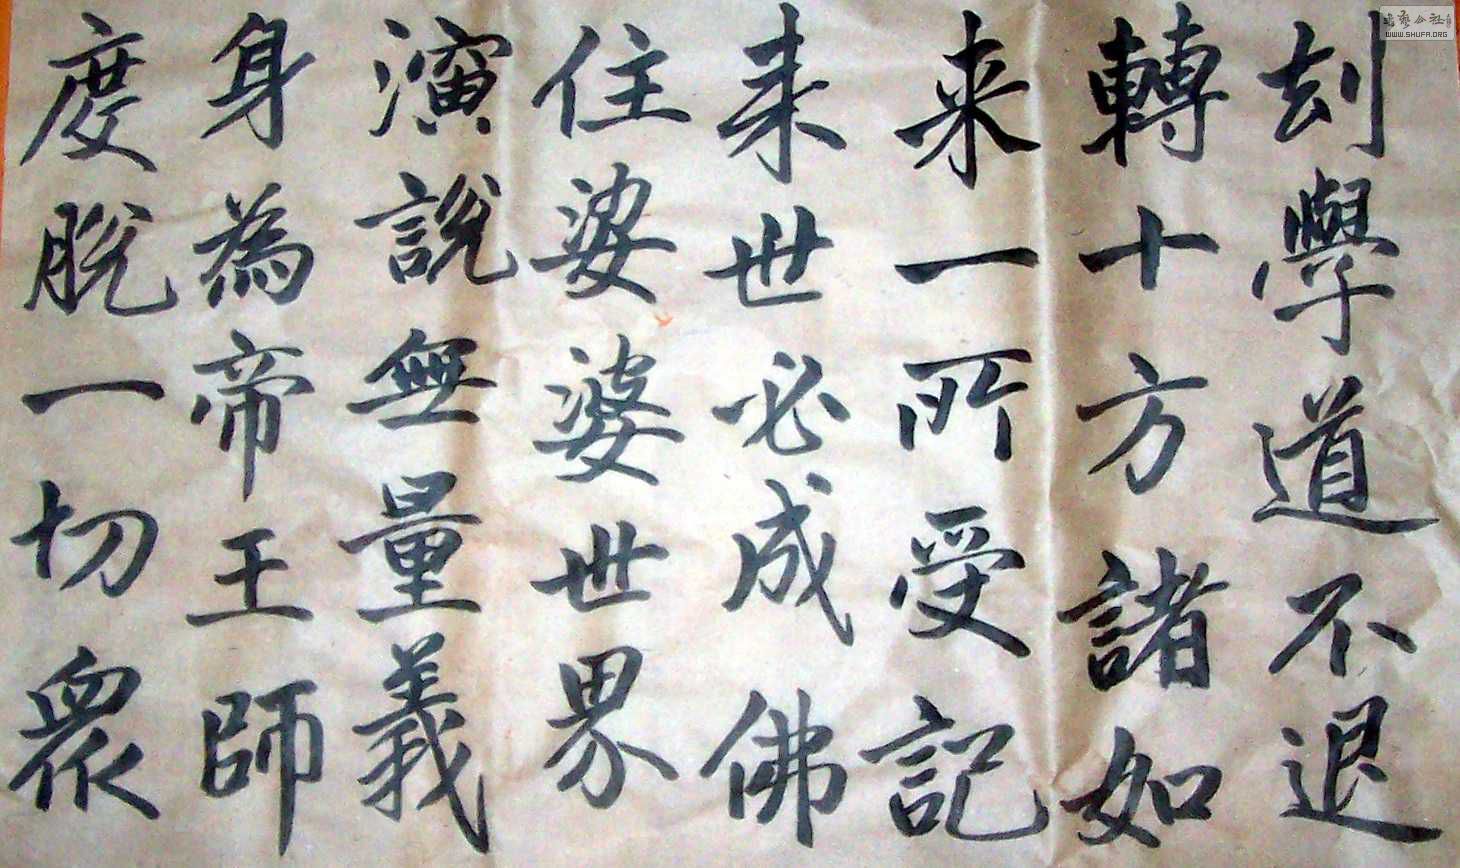 刦學道不退
轉十方諸如
来一所受記
来世必成佛
住娑婆世界
演說無量義
身為帝王師
度脫一切眾
WWW.SHUFA.ORG